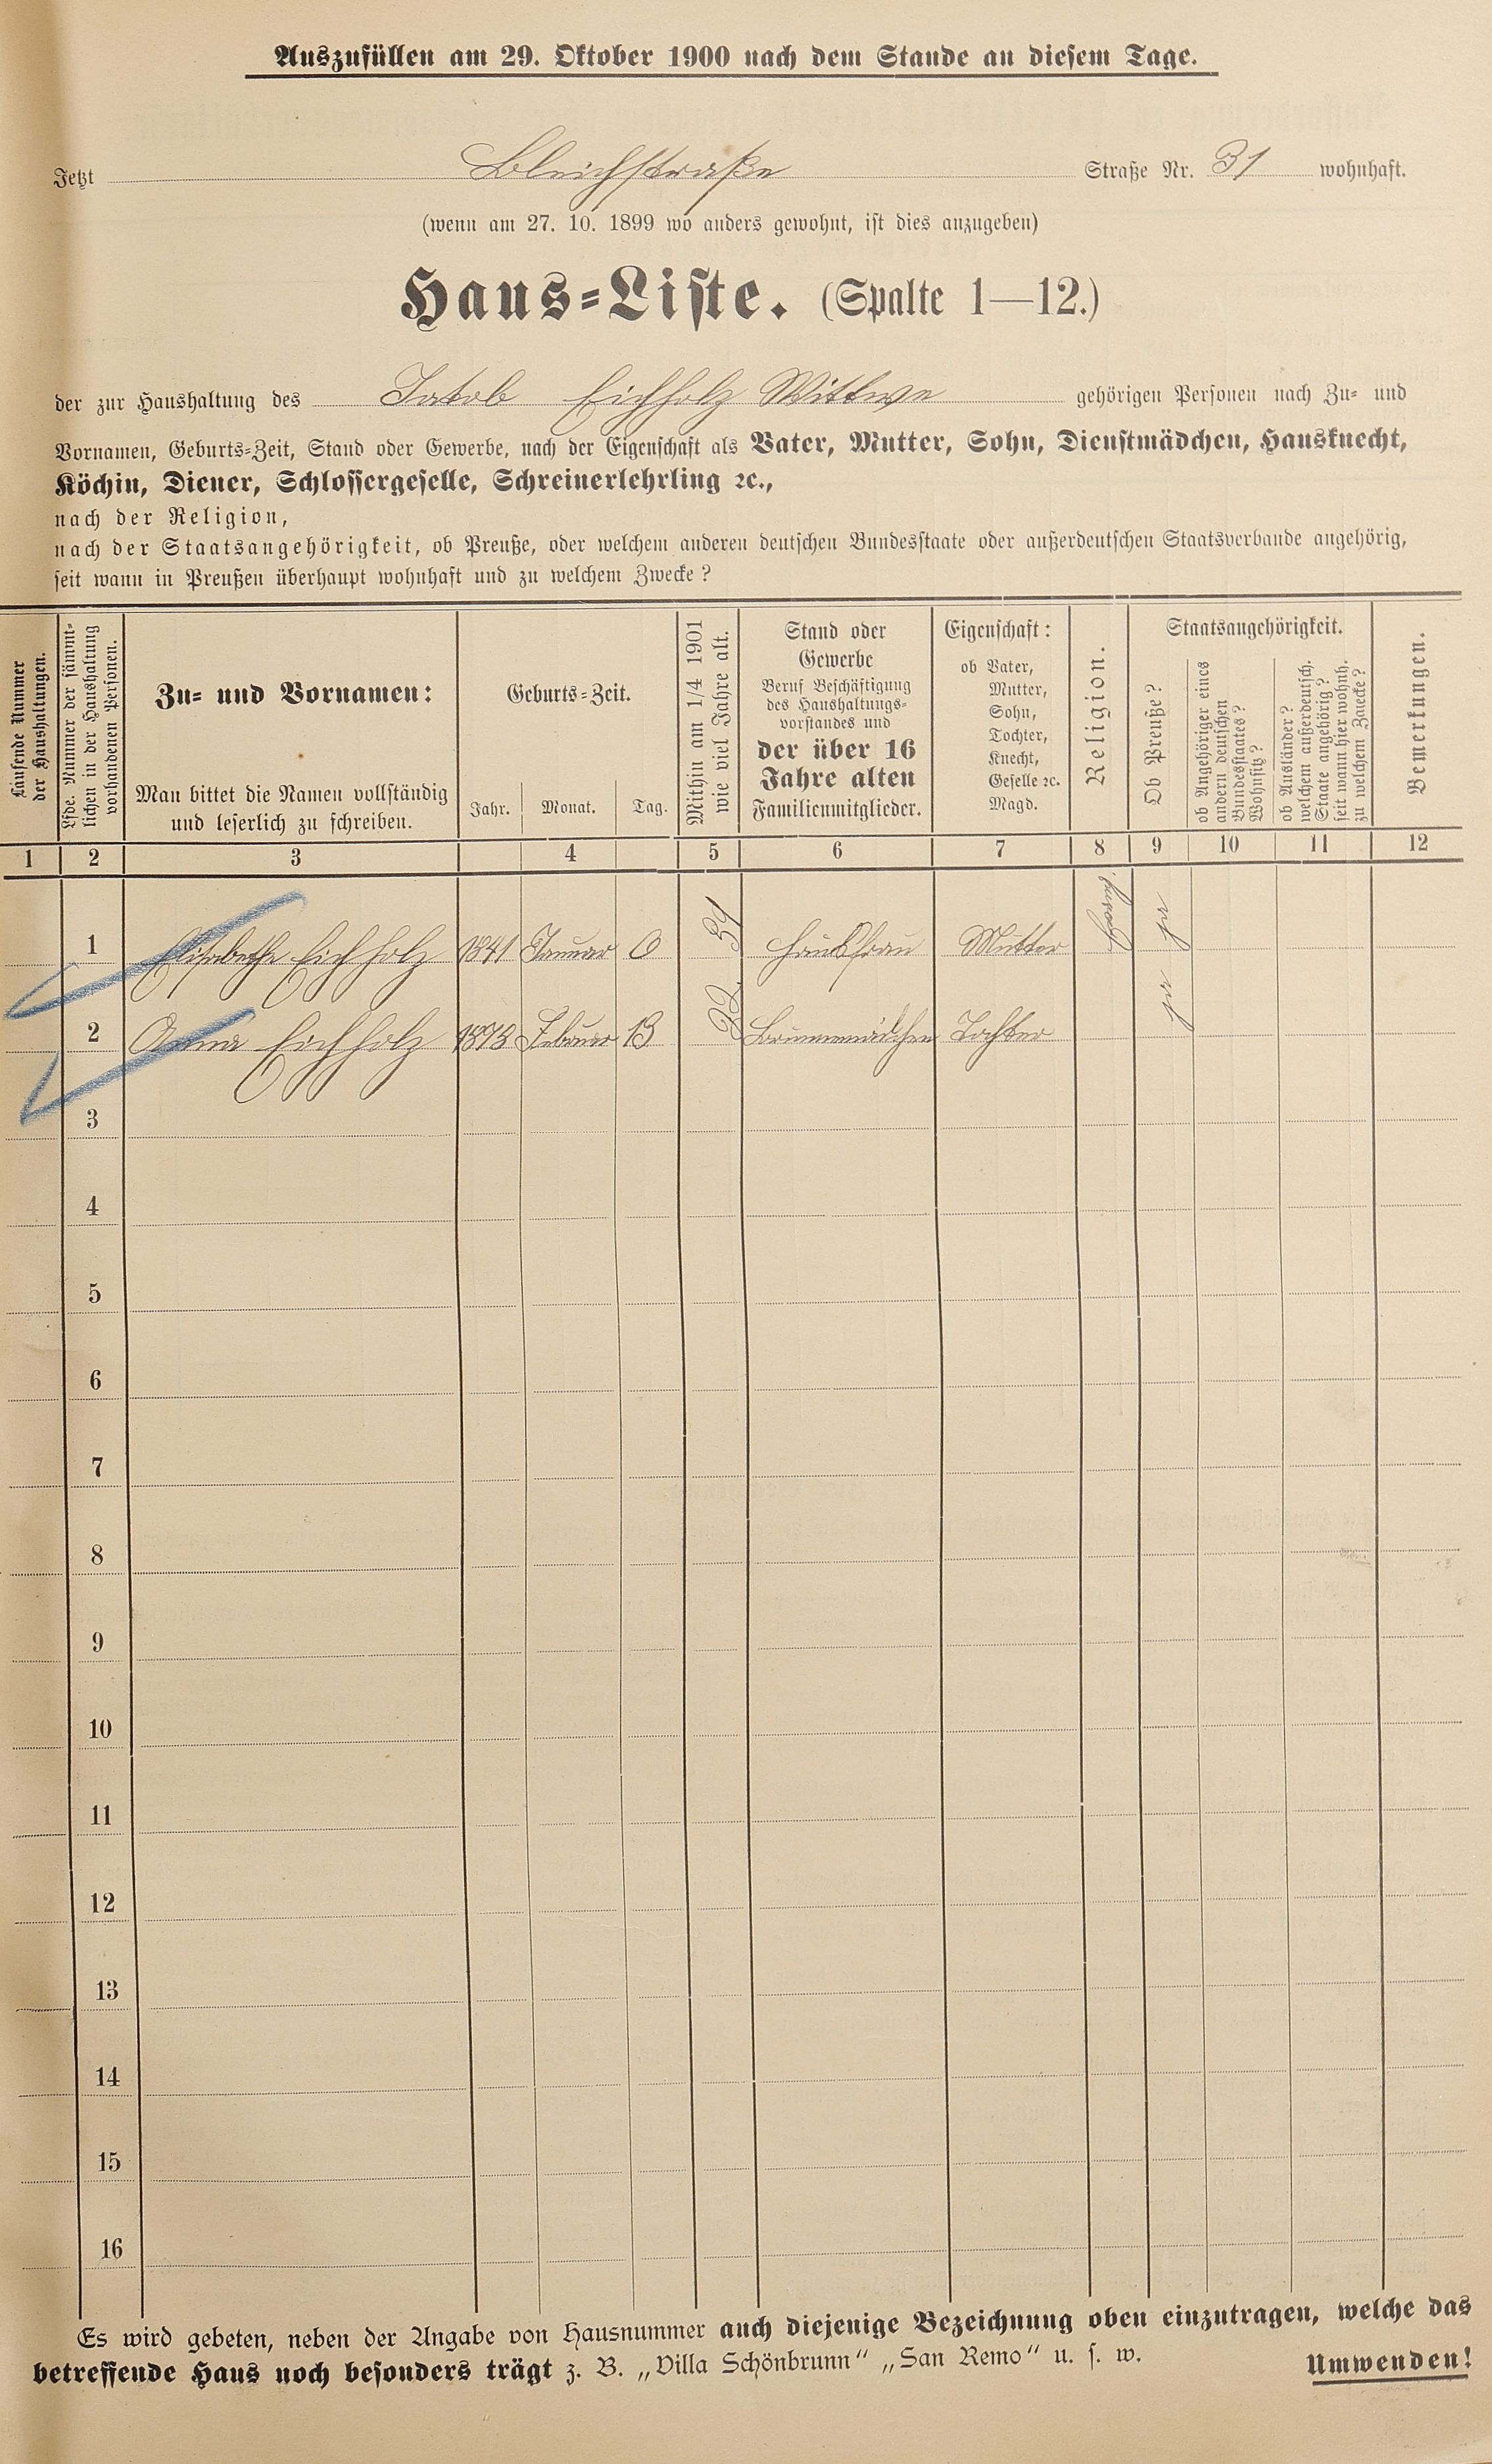 Auszufüllen am 29. Oktober 1900 nach dem Stande an diesem Tage.
Jetzt Bleichstraße Straße Nr. 31 wohnhaft.
(wenn am 27. 10. 1899 wo anders gewohnt, ist dies anzugeben)
Haus=Liste. (Spalte 1—12.)
der zur Haushaltung des Jakob Eichholz Wittwe gehörigen Personen nach Zu= und
Vornamen, Geburts=Zeit, Stand oder Gewerbe, nach der Eigenschaft als Vater, Mutter, Sohn, Dienstmädchen, Hausknecht,
Köchin, Diener, Schlossergeselle, Schreinerlehrling ꝛc.,
nach der Religion,
nach der Staatsangehörigkeit, ob Preuße, oder welchem anderen deutschen Bundesstaate oder außerdeutschen Staatsverbande angehörig,
seit wann in Preußen überhaupt wohnhaft und zu welchem Zwecke?
Laufende Nummer
der Haushaltungen.
Lfde. Nummer der sämmt-
lichen in der Haushaltung
vorhandenen Personen.
Zu= und Vornamen:
Man bittet die Namen vollständig
und leserlich zu schreiben.
Geburts=Zeit.
Jahr. Monat. Tag.
Mithin am 1/4 1901
wie viel Jahre alt.
Stand oder
Gewerbe
Beruf Beschäftigung
des Haushaltungs-
vorstandes und
der über 16
Jahre alten
Familienmitglieder.
Eigenschaft:
ob Vater,
Mutter,
Sohn,
Tochter,
Knecht,
Geselle ꝛc.
Magd.
Religion.
Staatsangehörigkeit.
Ob Preuße?
ob Angehöriger eines
andern deutschen
Bundesstaates?
Wohnsitz?
ob Ausländer?
welchem außerdeutsch.
Staate angehörig?
seit wann hier wohnh.
zu welchem Zwecke?
Bemerkungen.
1 2 3 4 5 6 7 8 9 10 11 12
1 Elisabethe Eichholz 1841 Januar 6 59 Hausfrau Mutter ja
2 Anna Eichholz 1873 Februar 13 Brunnenmädchen Tochter ja
3
4
5
6
7
8
9
10
11
12
13
14
15
16
Es wird gebeten, neben der Angabe von Hausnummer auch diejenige Bezeichnung oben einzutragen, welche das
betreffende Haus noch besonders trägt z. B. „Villa Schönbrunn“ „San Remo“ u. s. w.
Umwenden!